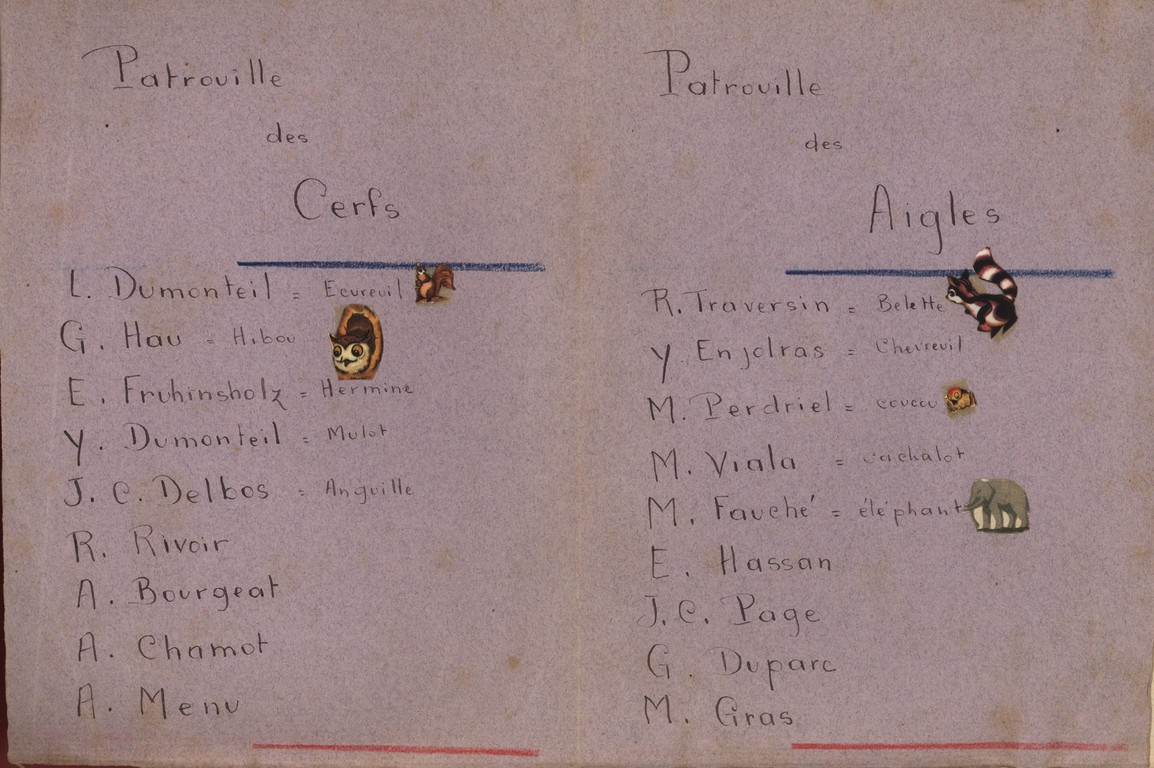 Patrouille
des
Cerfs
L. Dumonteil = Ecureuil
G. Hau = Hibou
E. Fruhinsholz = Hermine
Y. Dumonteil = Mulot
J. C. Delbos = Anguille
R. Rivoir
A. Bourgeat
A. Chamot
A. Menu
Patrouille
des
Aigles
R. Traversin = Belette
Y. Enjolras = Chevreuil
M. Perdriel = coucou
M. Viala = cachalot
M. Fauché = éléphant
E. Hassan
J. C. Page
G. Duparc
M. Gras